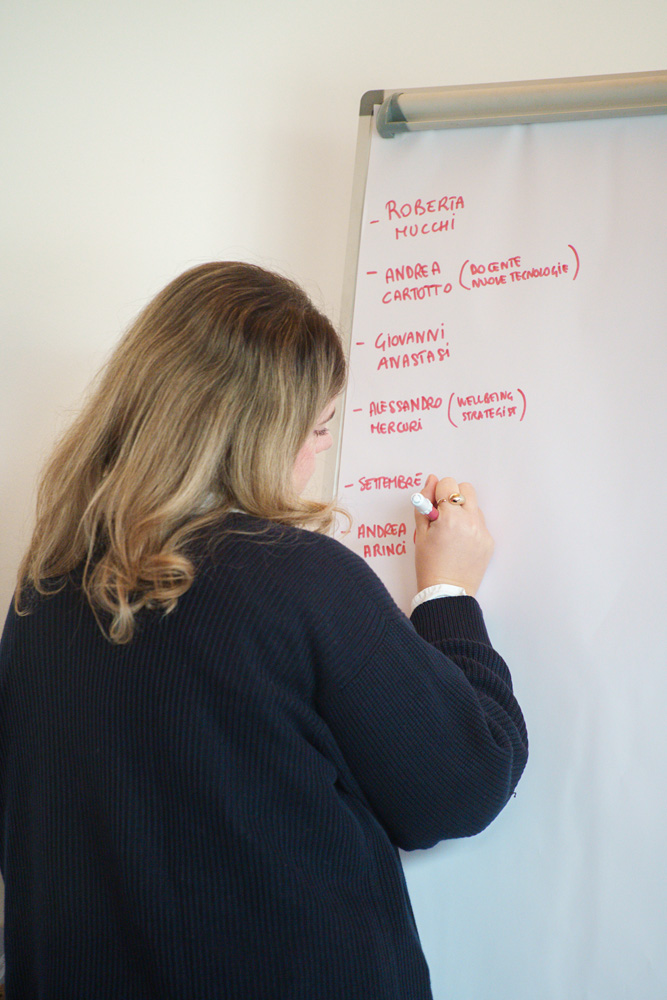 - ROBERTA
MUCCHI
- ANDREA (DOCENTE
CARTOTTO NUOVE TECNOLOGIE)
- GIOVANNI
ANASTASI
- ALESSANDRO (WELLBEING
MERCURI STRATEGIST)
- SETTEMBRE
- ANDREA (
ARINCI